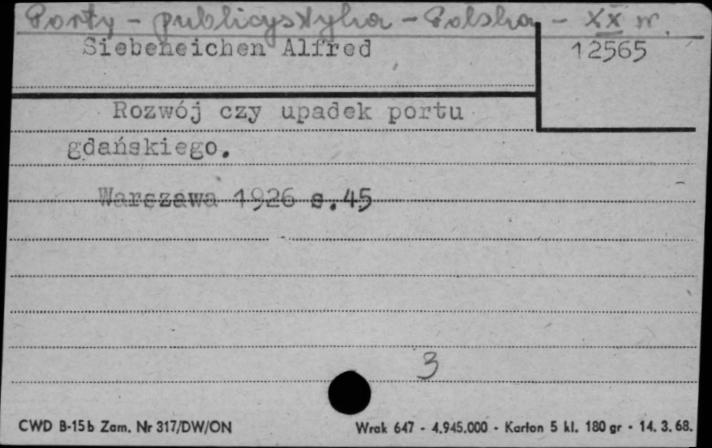 Porty - publicystyka - Polska - XX w.
Siebeneichen Alfred
12565
Rozwój czy upadek portu
gdańskiego.
Warszawa 1926 s.45
3
CWD B-15b Zam. Nr 317/DW/ON
Wrak 647 - 4.945.000 - Karton 5 kl. 180 gr - 14. 3. 68.